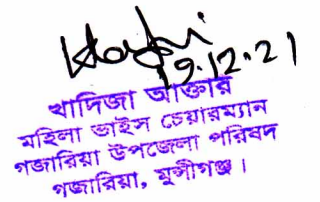 19.12.21
খাদিজা আক্তার
মহিলা ভাইস চেয়ারম্যান
গজারিয়া উপজেলা পরিষদ
গজারিয়া, মুন্সীগঞ্জ।